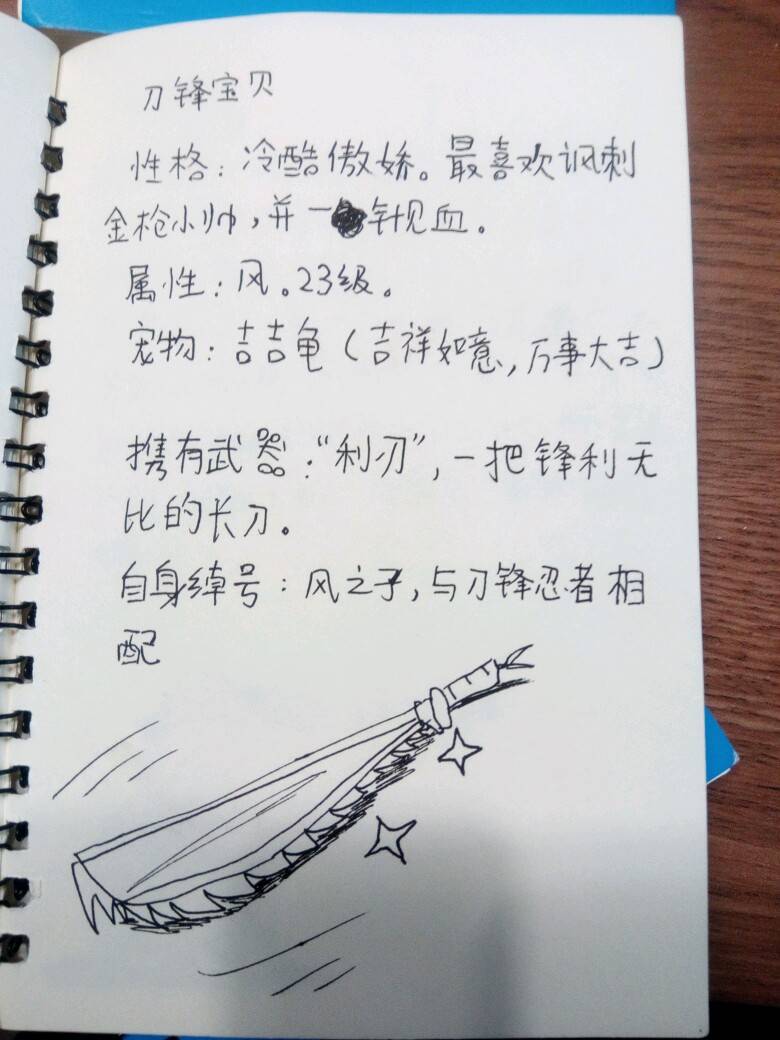 刀锋宝贝
性格：冷酷傲娇。最喜欢讽刺
金枪小帅，并一针见血。
属性：风。23级。
宠物：喆喆龟（吉祥如意，万事大吉）
携有武器：“利刃”，一把锋利无
比的长刀。
自身绰号：风之子，与刀锋忍者相
配